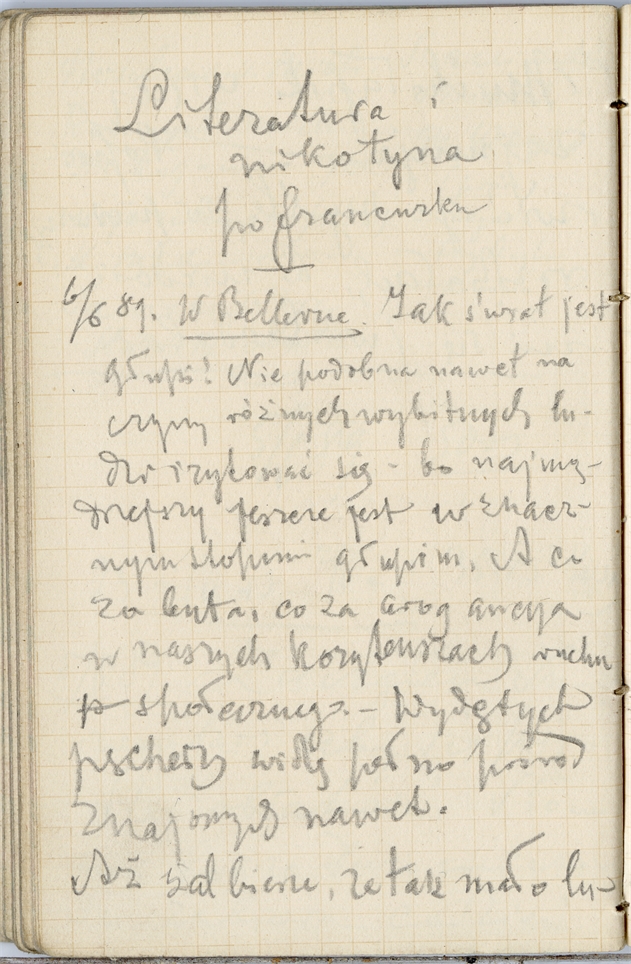 Literatura i
nikotyna
po francusku
6/6 89. W Bellevue. Jak świat jest
głupi! Nie podobna nawet na
czyny różnych wybitnych lu-
dzi irytować się - bo najmą-
drzejszy jeszcze jest w znacz-
nym stopniu głupim. A co
za buta, co za arogancya
w naszych koryfeuszach ruchu
społecznego. - Wydętych
pęcherzy widzę pełno pośród
znajomych nawet.
Aż żal bierze, że tak mało lu-